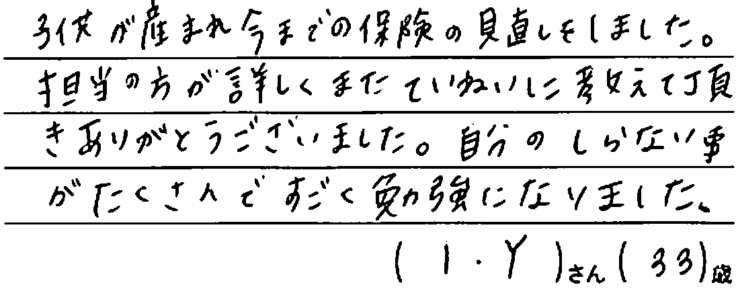 子供が産まれ今までの保険の見直しをしました。
担当の方が詳しくまたていねいに教えて頂
きありがとうございました。自分のしらない事
がたくさんですごく勉強になりました。
(I・Y)さん(33)歳